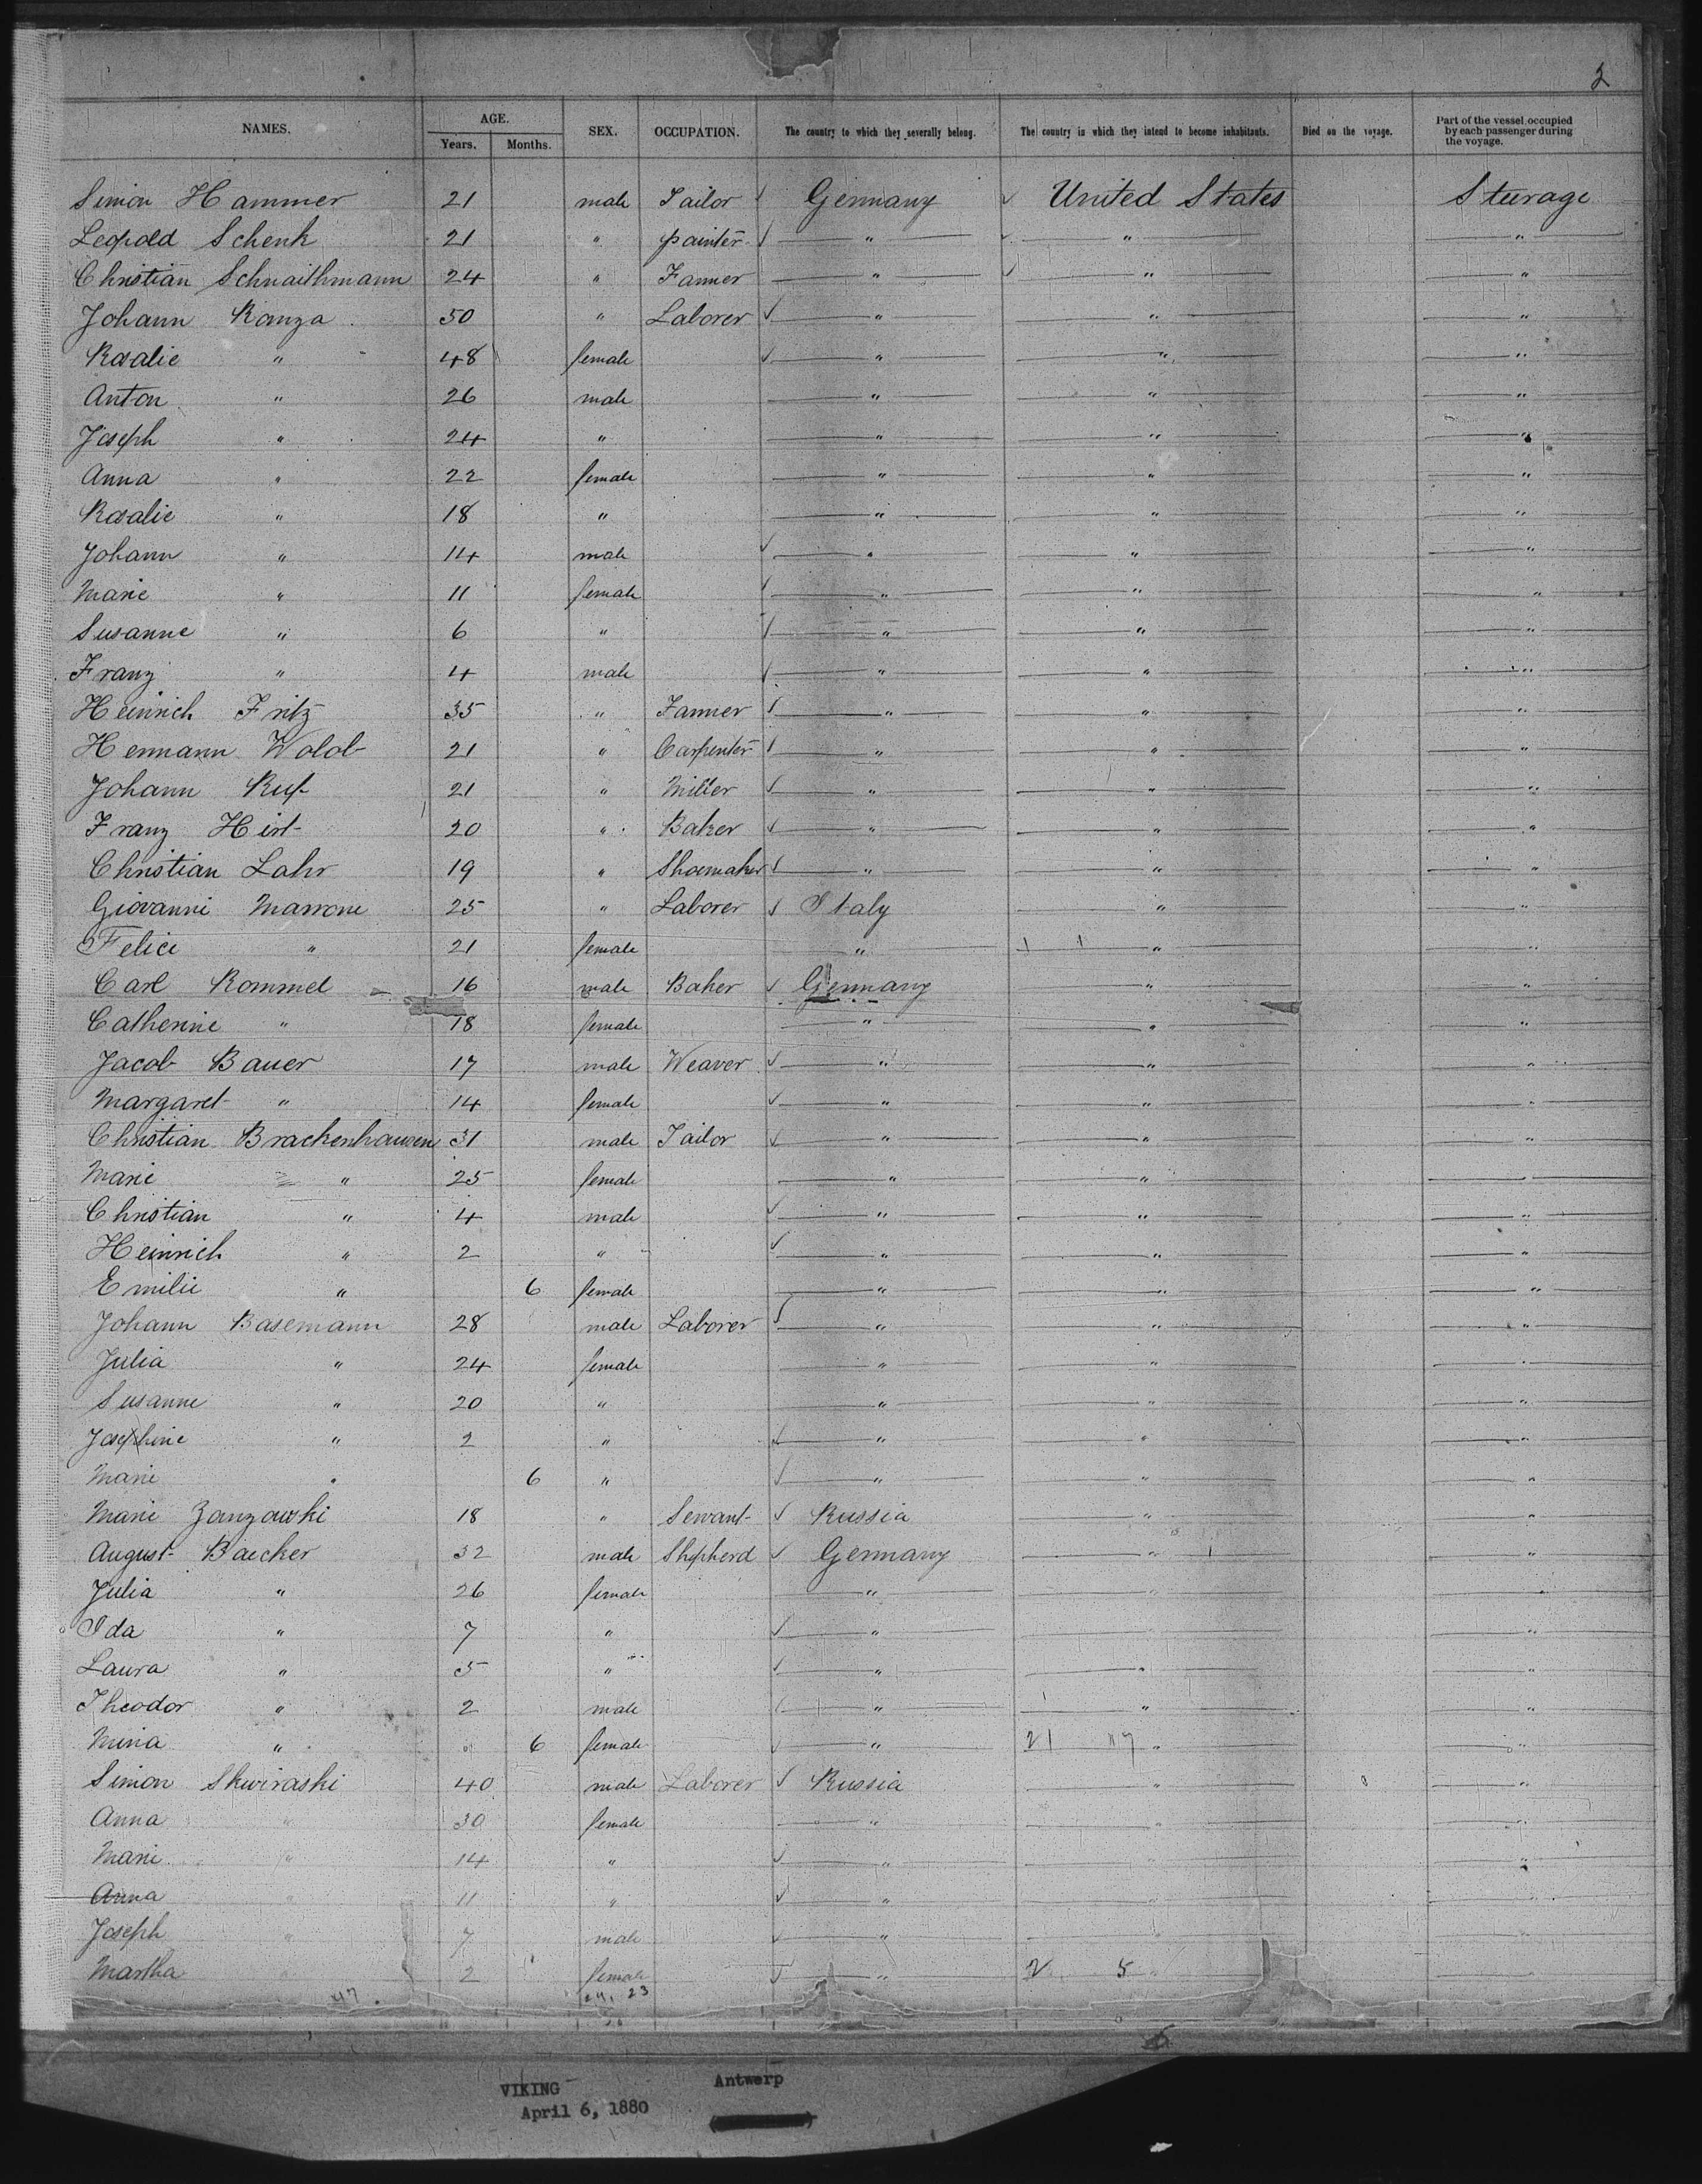 2
NAMES. AGE. Years. Months. SEX. OCCUPATION. The country to which they severally belong. The country in which they intend to become inhabitants. Died on the voyage. Part of the vessel occupied by each passenger during the voyage.
Simon Hammer 21 male Tailor Germany United States Steerage
Leopold Schenk 21 " painter " " "
Christian Schnaithmann 24 " Farmer " " "
Johann Kanza 50 " Laborer " " "
Rosalie " 48 female " " "
Anton " 26 male " " "
Joseph " 24 " " " "
Anna " 22 female " " "
Rosalie " 18 " " " "
Johann " 14 male " " "
Marie " 11 female " " "
Susanne " 6 " " " "
Franz " 4 male " " "
Heinrich Fritz 35 " Farmer " " "
Hermann 21 " Carpenter " " "
Johann Ruf 21 " Miller " " "
Franz Hirt 20 " Baker " " "
Christian Lahr 19 " Shoemaker " " "
Giovanni Marrone 25 " Laborer Italy " "
Felice " 21 female " " "
Carl Rommel 16 male Baker Germany " "
Catherine " 18 female " " "
Jacob Bauer 17 male Weaver " " "
Margaret " 14 female " " "
Christian Brackenhausen 31 male Tailor " " "
Marie " 25 female " " "
Christian " 4 male " " "
Heinrich " 2 " " " "
Emilie " 6 female " " "
Johann Basemann 28 male Laborer " " "
Julia " 24 female " " "
Susanne " 20 " " " "
Josephine " 2 " " " "
Marie " 6 " " " "
Marie Zanzowski 18 " Servant Russia " "
August Baecker 32 male Shepherd Germany " "
Julia " 26 female " " "
Ida " 7 " " " "
Laura " 5 " " " "
Theodor " 2 male " " "
Mina " 6 female " 21 "
Simon Skwiraski 40 male Laborer Russia " "
Anna " 30 female " " "
Marie " 14 " " " "
Anna " 11 " " " "
Joseph " 7 male " " "
Martha " 2 female " 2 5 " "
47 24 23
VIKING Antwerp
April 6, 1880